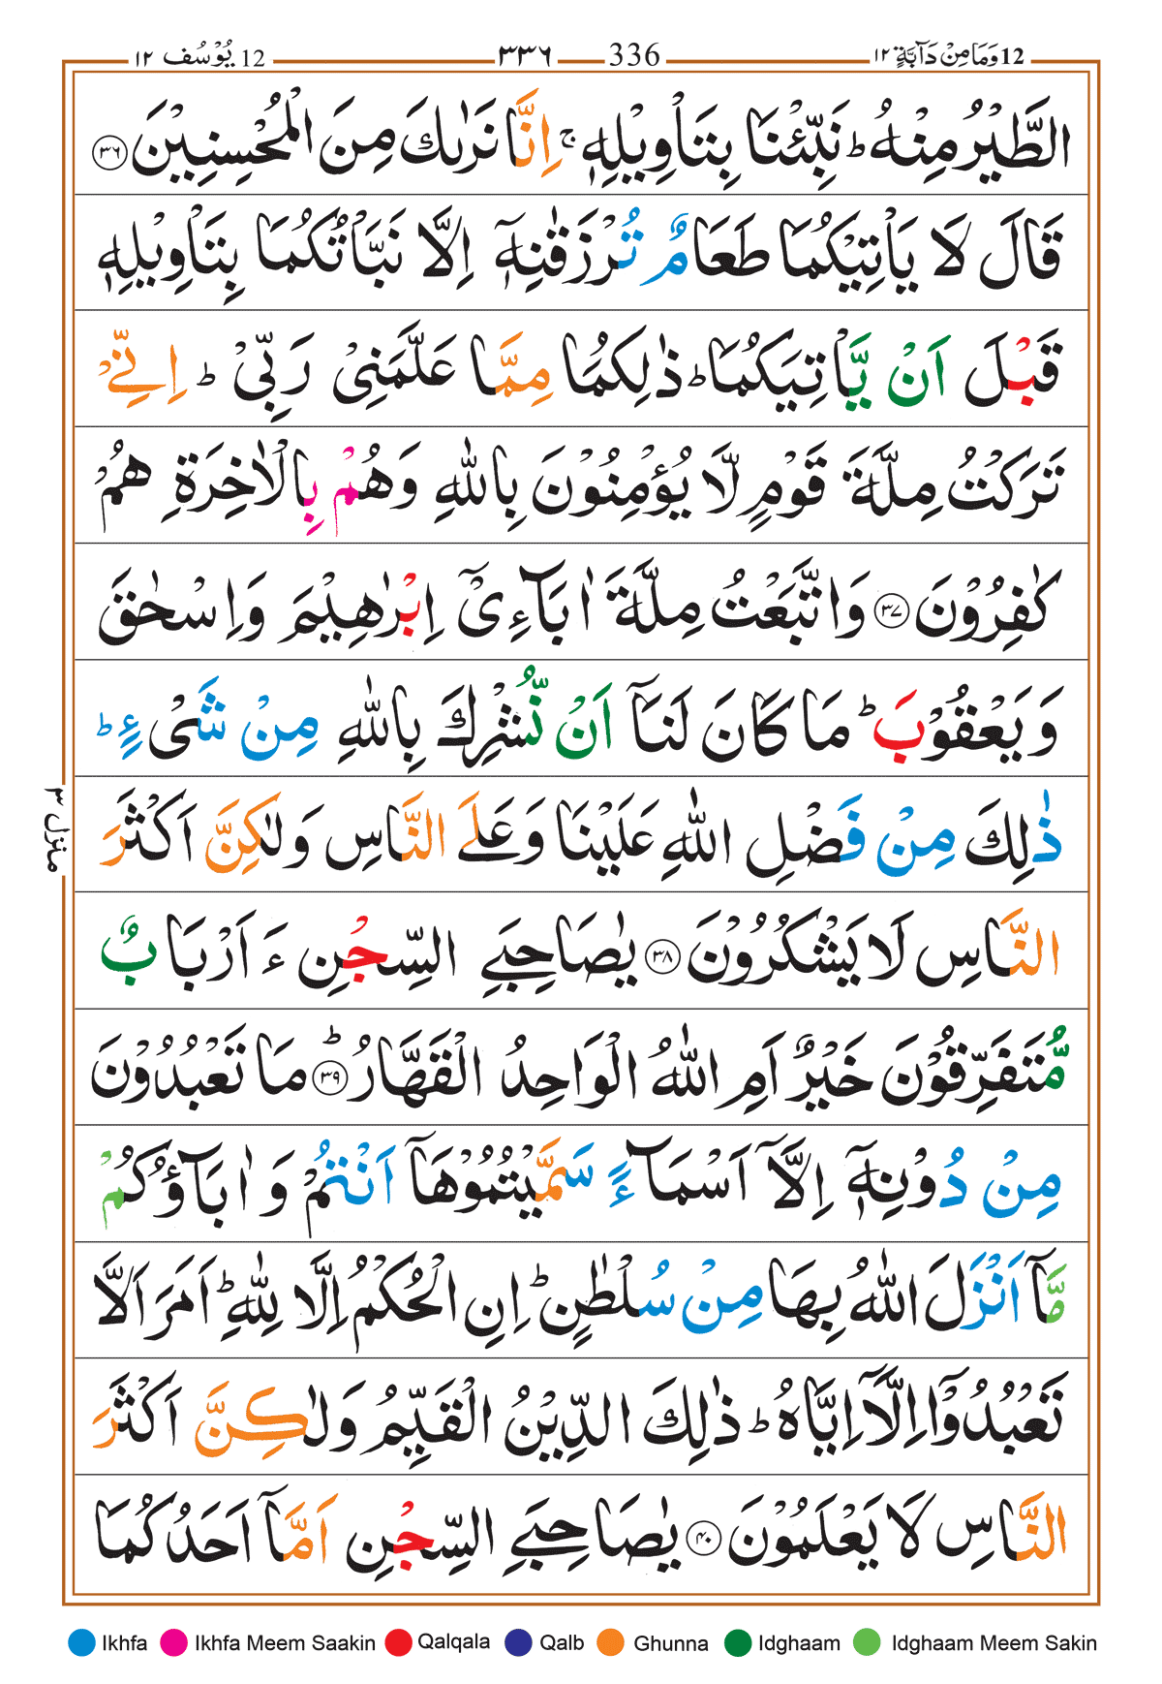 12 يُوْسُف ١٢ ٣٣٦ 336 12 وَمَا مِنْ دَآبَّةٍ ١٢
الطَّيْرُ مِنْهُ ؕ نَبِّئْنَا بِتَاْوِيْلِهٖ ۚ اِنَّا نَرٰىكَ مِنَ الْمُحْسِنِيْنَ ﴿٣٦﴾
قَالَ لَا يَاْتِيْكُمَا طَعَامٌ تُرْزَقٰنِهٖۤ اِلَّا نَبَّاْتُكُمَا بِتَاْوِيْلِهٖ
قَبْلَ اَنْ يَّاْتِيَكُمَا ؕ ذٰلِكُمَا مِمَّا عَلَّمَنِىْ رَبِّىْ ؕ اِنِّىْ
تَرَكْتُ مِلَّةَ قَوْمٍ لَّا يُؤْمِنُوْنَ بِاللّٰهِ وَهُمْ بِالْاٰخِرَةِ هُمْ
كٰفِرُوْنَ ﴿٣٧﴾ وَاتَّبَعْتُ مِلَّةَ اٰبَآءِىْۤ اِبْرٰهِيْمَ وَاِسْحٰقَ
وَيَعْقُوْبَ ؕ مَا كَانَ لَنَاۤ اَنْ نُّشْرِكَ بِاللّٰهِ مِنْ شَىْءٍ ؕ
ذٰلِكَ مِنْ فَضْلِ اللّٰهِ عَلَيْنَا وَعَلَى النَّاسِ وَلٰكِنَّ اَكْثَرَ
النَّاسِ لَا يَشْكُرُوْنَ ﴿٣٨﴾ يٰصَاحِبَىِ السِّجْنِ ءَاَرْبَابٌ
مُّتَفَرِّقُوْنَ خَيْرٌ اَمِ اللّٰهُ الْوَاحِدُ الْقَهَّارُ ؕ ﴿٣٩﴾ مَا تَعْبُدُوْنَ
مِنْ دُوْنِهٖۤ اِلَّاۤ اَسْمَآءً سَمَّيْتُمُوْهَاۤ اَنْتُمْ وَاٰبَآؤُكُمْ
مَّاۤ اَنْزَلَ اللّٰهُ بِهَا مِنْ سُلْطٰنٍ ؕ اِنِ الْحُكْمُ اِلَّا لِلّٰهِ ؕ اَمَرَ اَلَّا
تَعْبُدُوْۤا اِلَّاۤ اِيَّاهُ ؕ ذٰلِكَ الدِّيْنُ الْقَيِّمُ وَلٰكِنَّ اَكْثَرَ
النَّاسِ لَا يَعْلَمُوْنَ ﴿٤٠﴾ يٰصَاحِبَىِ السِّجْنِ اَمَّاۤ اَحَدُكُمَا
منزل ٣
Ikhfa Ikhfa Meem Saakin Qalqala Qalb Ghunna Idghaam Idghaam Meem Sakin